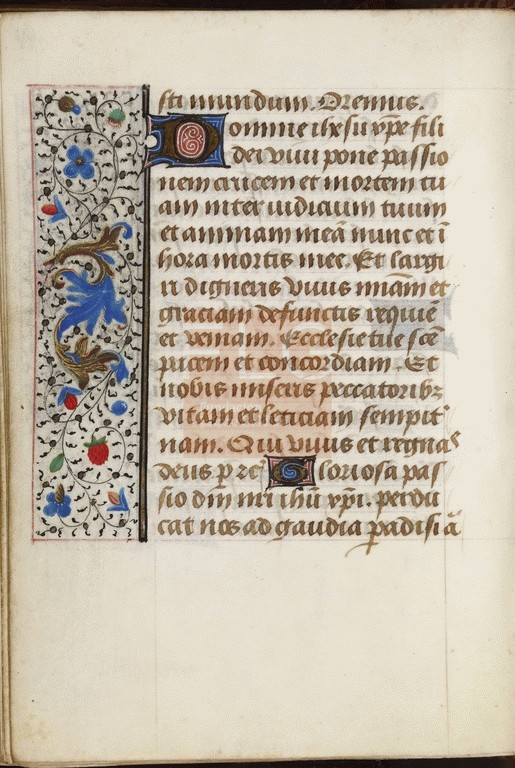 sti mundum. Oremus.
Domine ihesu xp̄e fili
dei viui pone passio
nem crucem et mortem tu
am inter iudicium tuum
et animam meā nunc et ī
hora mortis mee. Et largi
ri digneris viuis mīam et
graciam defunctis requiē
et veniam. Ecclesie tue scē
pacem et concordiam. Et
nobis miseris peccatoribꝫ
vitam et leticiam sempit
nam. Qui viuis et regnas
deus p̄ rc̄ Gloriosa pas
sio dn̄i nr̄i ihū xp̄i. perdu
cat nos ad gaudia padisi ā